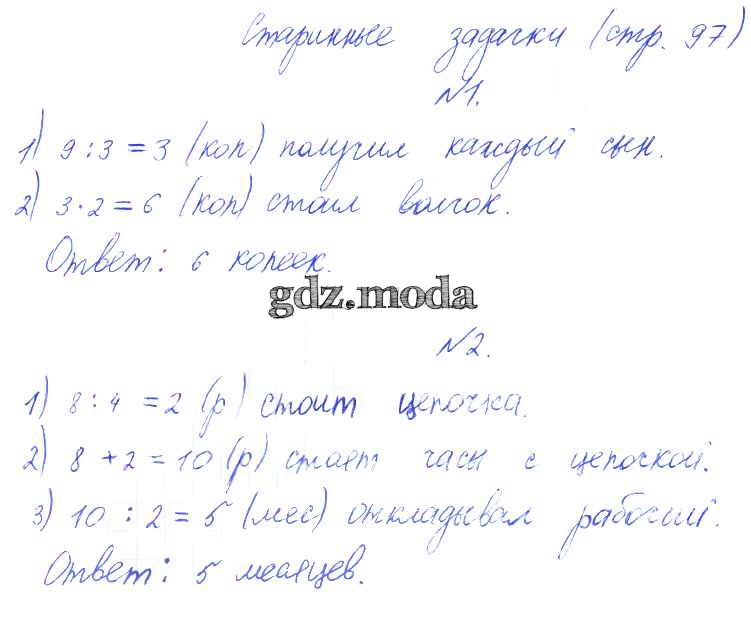 Старинные задачки (стр. 97)
№1.
1) 9 : 3 = 3 (коп) получил каждый сын.
2) 3 · 2 = 6 (коп) стоил волчок.
Ответ: 6 копеек.
gdz.moda
№2.
1) 8 : 4 = 2 (р) стоит цепочка.
2) 8 + 2 = 10 (р) стоят часы с цепочкой.
3) 10 : 2 = 5 (мес) откладывал рабочий.
Ответ: 5 месяцев.